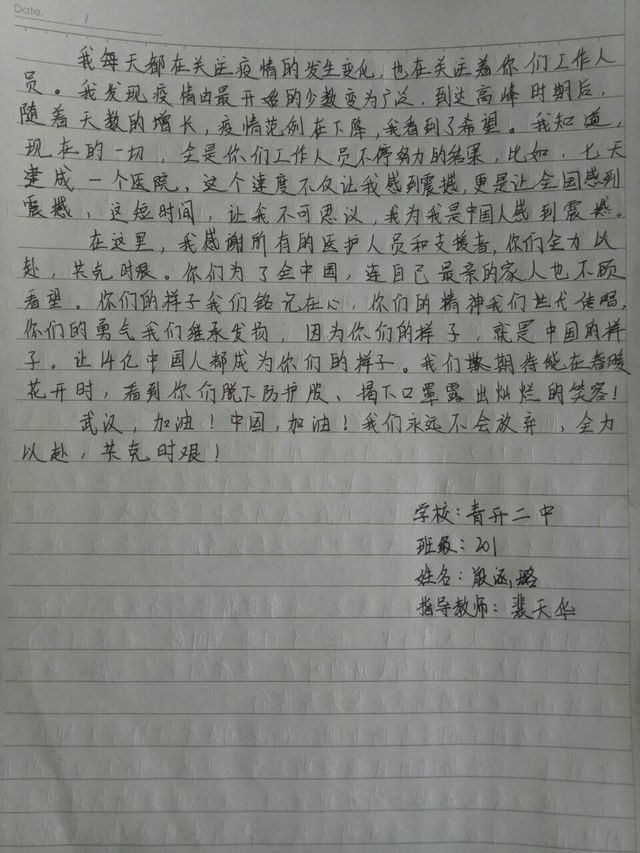 Date. 1
我每天都在关注疫情的发生变化,也在关注着你们工作人
员。我发现疫情由最开始的少数变为广泛,到达高峰时期后,
随着天数的增长,疫情范例在下降,我看到了希望。我知道,
现在的一切,全是你们工作人员不停努力的结果,比如,七天
建成一个医院,这个速度不仅让我感到震撼,更是让全国感到
震撼,这短时间,让我不可思议,我为我是中国人感到震撼。
在这里,我感谢所有的医护人员和支援者,你们全力以
赴,共克时艰。你们为了全中国,连自己最亲的家人也不顾
看望。你们的样子我们铭记在心,你们的精神我们世代传唱,
你们的勇气我们继承发扬,因为你们的样子,就是中国的样
子。让14亿中国人都成为你们的样子。我们期待能在春暖
花开时,看到你们脱下防护服、揭下口罩露出灿烂的笑容!
武汉,加油!中国,加油!我们永远不会放弃,全力
以赴,共克时艰!
学校:青开二中
班级:201
姓名:殷涵璐
指导教师:裴天华